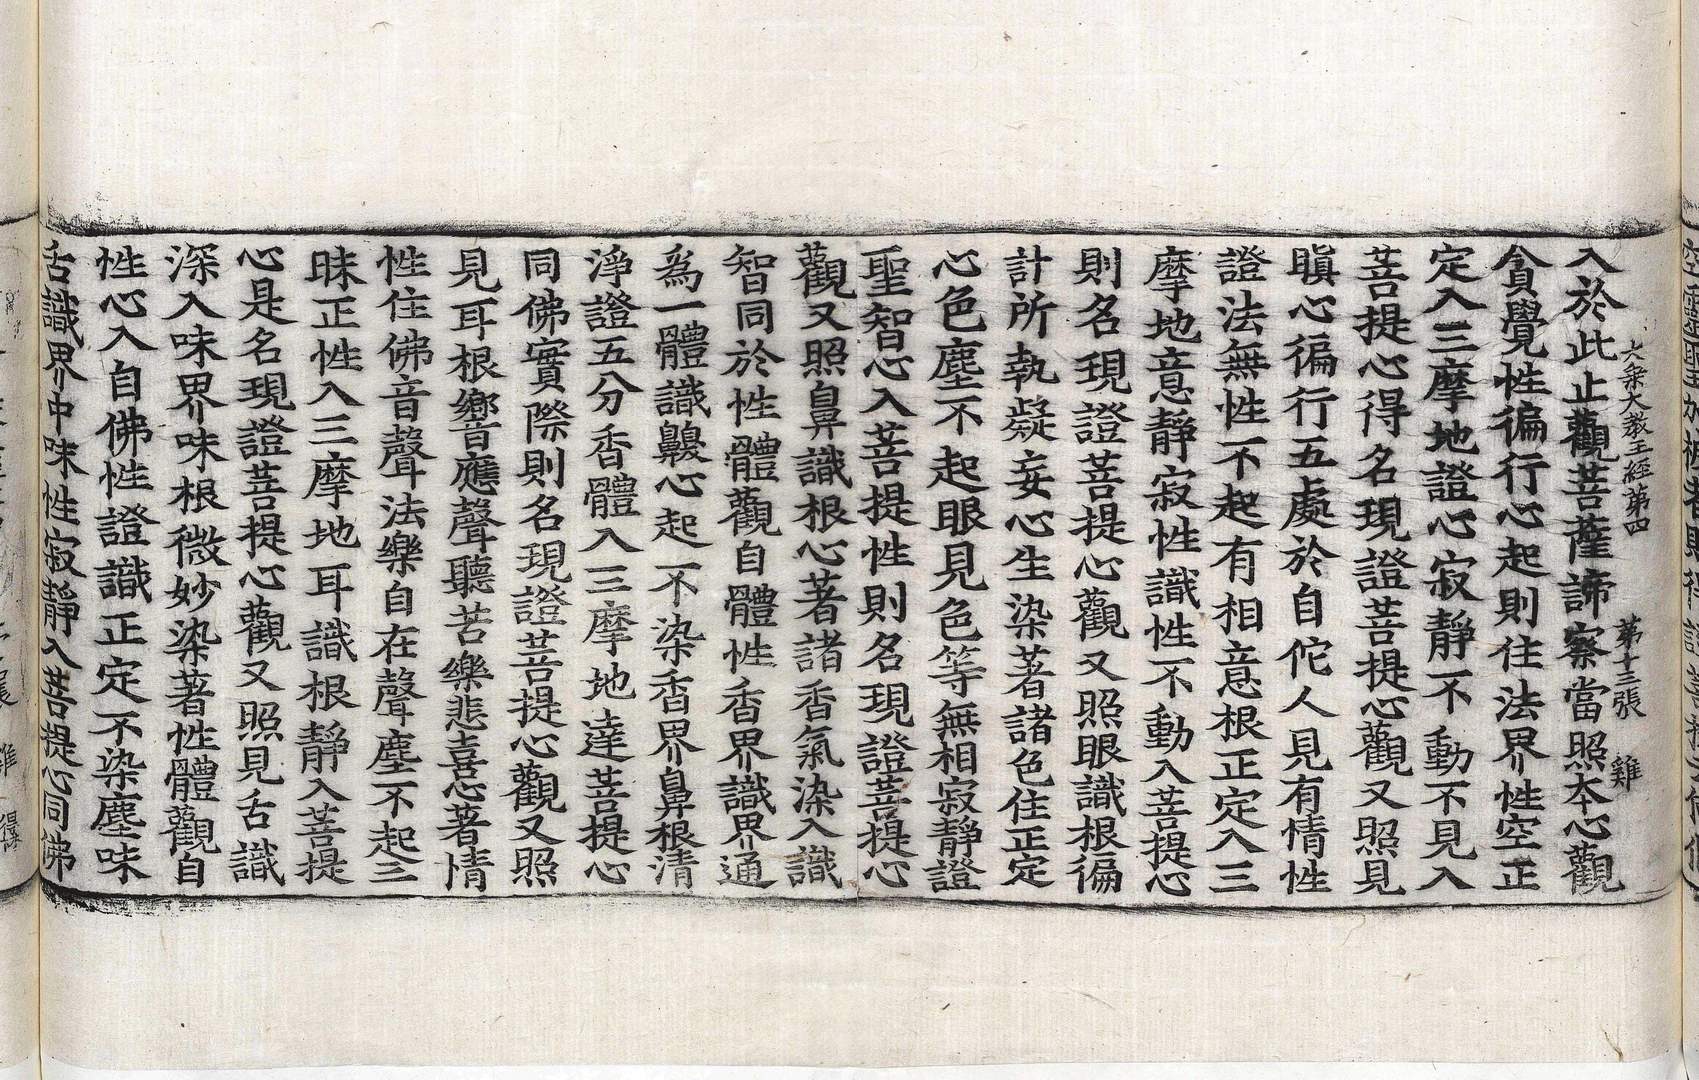 大乗大教王經第四　第十三張　雞
入於此止觀菩薩諦察當照本心觀
貪覺性徧行心起則住法界性空正
定入三摩地證心寂靜不動不見入
菩提心得名現證菩提心觀又照見
瞋心徧行五處於自佗人見有情性
證法無性不起有相意根正定入三
摩地意靜寂性識性不動入菩提心
則名現證菩提心觀又照眼識根徧
計所執凝妄心生染著諸色住正定
心色塵不起眼見色等無相寂靜證
聖智心入菩提性則名現證菩提心
觀又照鼻識根心著諸香氣染入識
智同於性體觀自體性香界識界通
爲一體識齅心起不染香界鼻根清
淨證五分香體入三摩地達菩提心
同佛實際則名現證菩提心觀又照
見耳根響應聲聽苦樂悲喜心著情
性住佛音聲法樂自在聲塵不起三
昧正性入三摩地耳識根靜入菩提
心是名現證菩提心觀又照見舌識
深入味界味根微妙染著性體觀自
性心入自佛性證識正定不染塵味
舌識界中味性寂靜入菩提心同佛